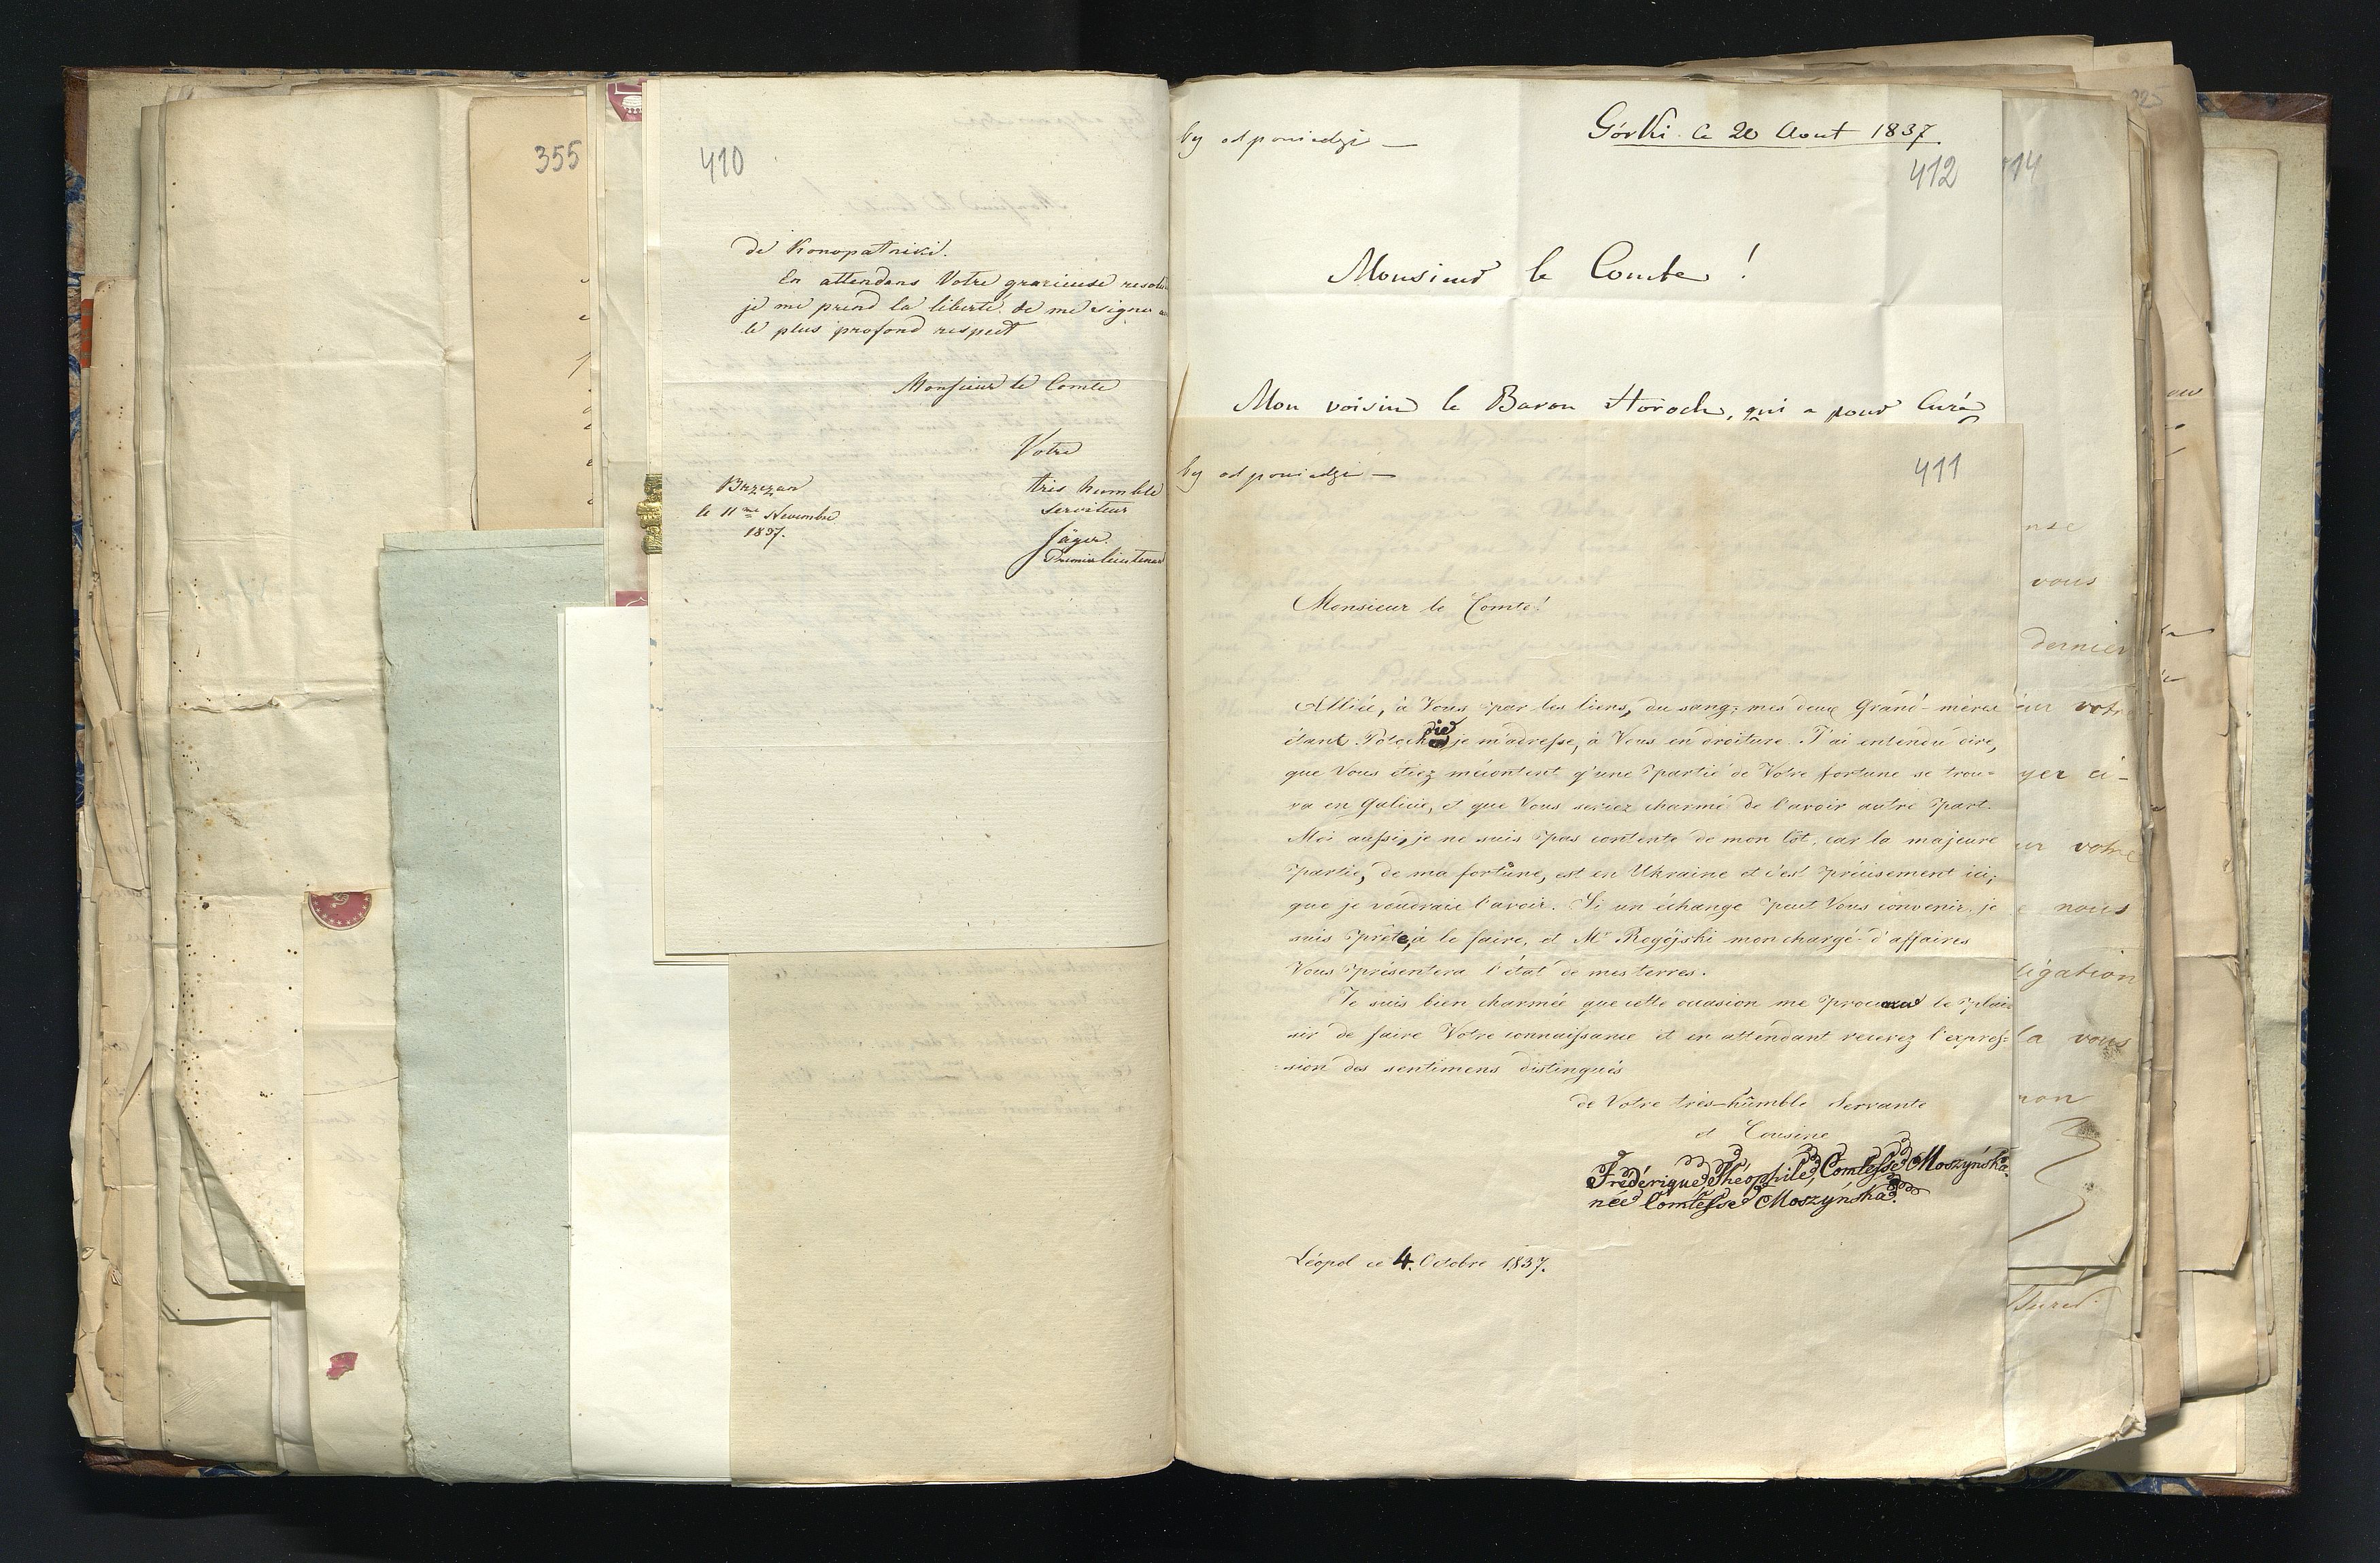 355
410
de Konopatniki.
En attendans Votre gracieuse resolu
je me prend la liberté de me signer
le plus profond respect
Monsieur le Comte
Votre
très humble
serviteur
Jäger
Premierlieutenan
Brzezan
le 11me Novembre
1837.
by odpowiedzi —
Górki ce 20 Aout 1837
412
414
Monsieur le Comte !
Mon voisin le Baron Horoch, qui a pour Curé
by odpowiedzi —
411
Monsieur le Comte!
Alliée, à Vous par les liens, du sang; mes deux Grand-mères
étant je m'adresse, à Vous en droiture. J'ai entendu dire,
que Vous étiez mécontent q'une partie de Votre fortune se trou=
va en Galicie, et que Vous seriez charmé de l'avoir autre part.
Moi aussi, je ne suis pas contente de mon lot, car la majeure
partie, de ma fortune, est en Ukraine et c'est précisement ici,
que je voudrais l'avoir. Si un échange peut Vous convenir, je
suis prête, à le faire, et Mr Regéjski mon chargé-d'affaires
Vous présentera l'état de mes terres.
Je suis bien charmée que cette occasion me le plai=
sir de faire Votre connaissance et en attendant recevez l'expres=
=sion des sentimens distingués
de Votre très-humble Servante
et Cousine
Frédérique Théophile, Comtesse Moszyńska.
née Comtesse Moszyńska.
Léopol ce 4. Octobre 1837.
nse
vous
dernier
votre
yer ci-
votre
nous
ligation
la vous
non
325